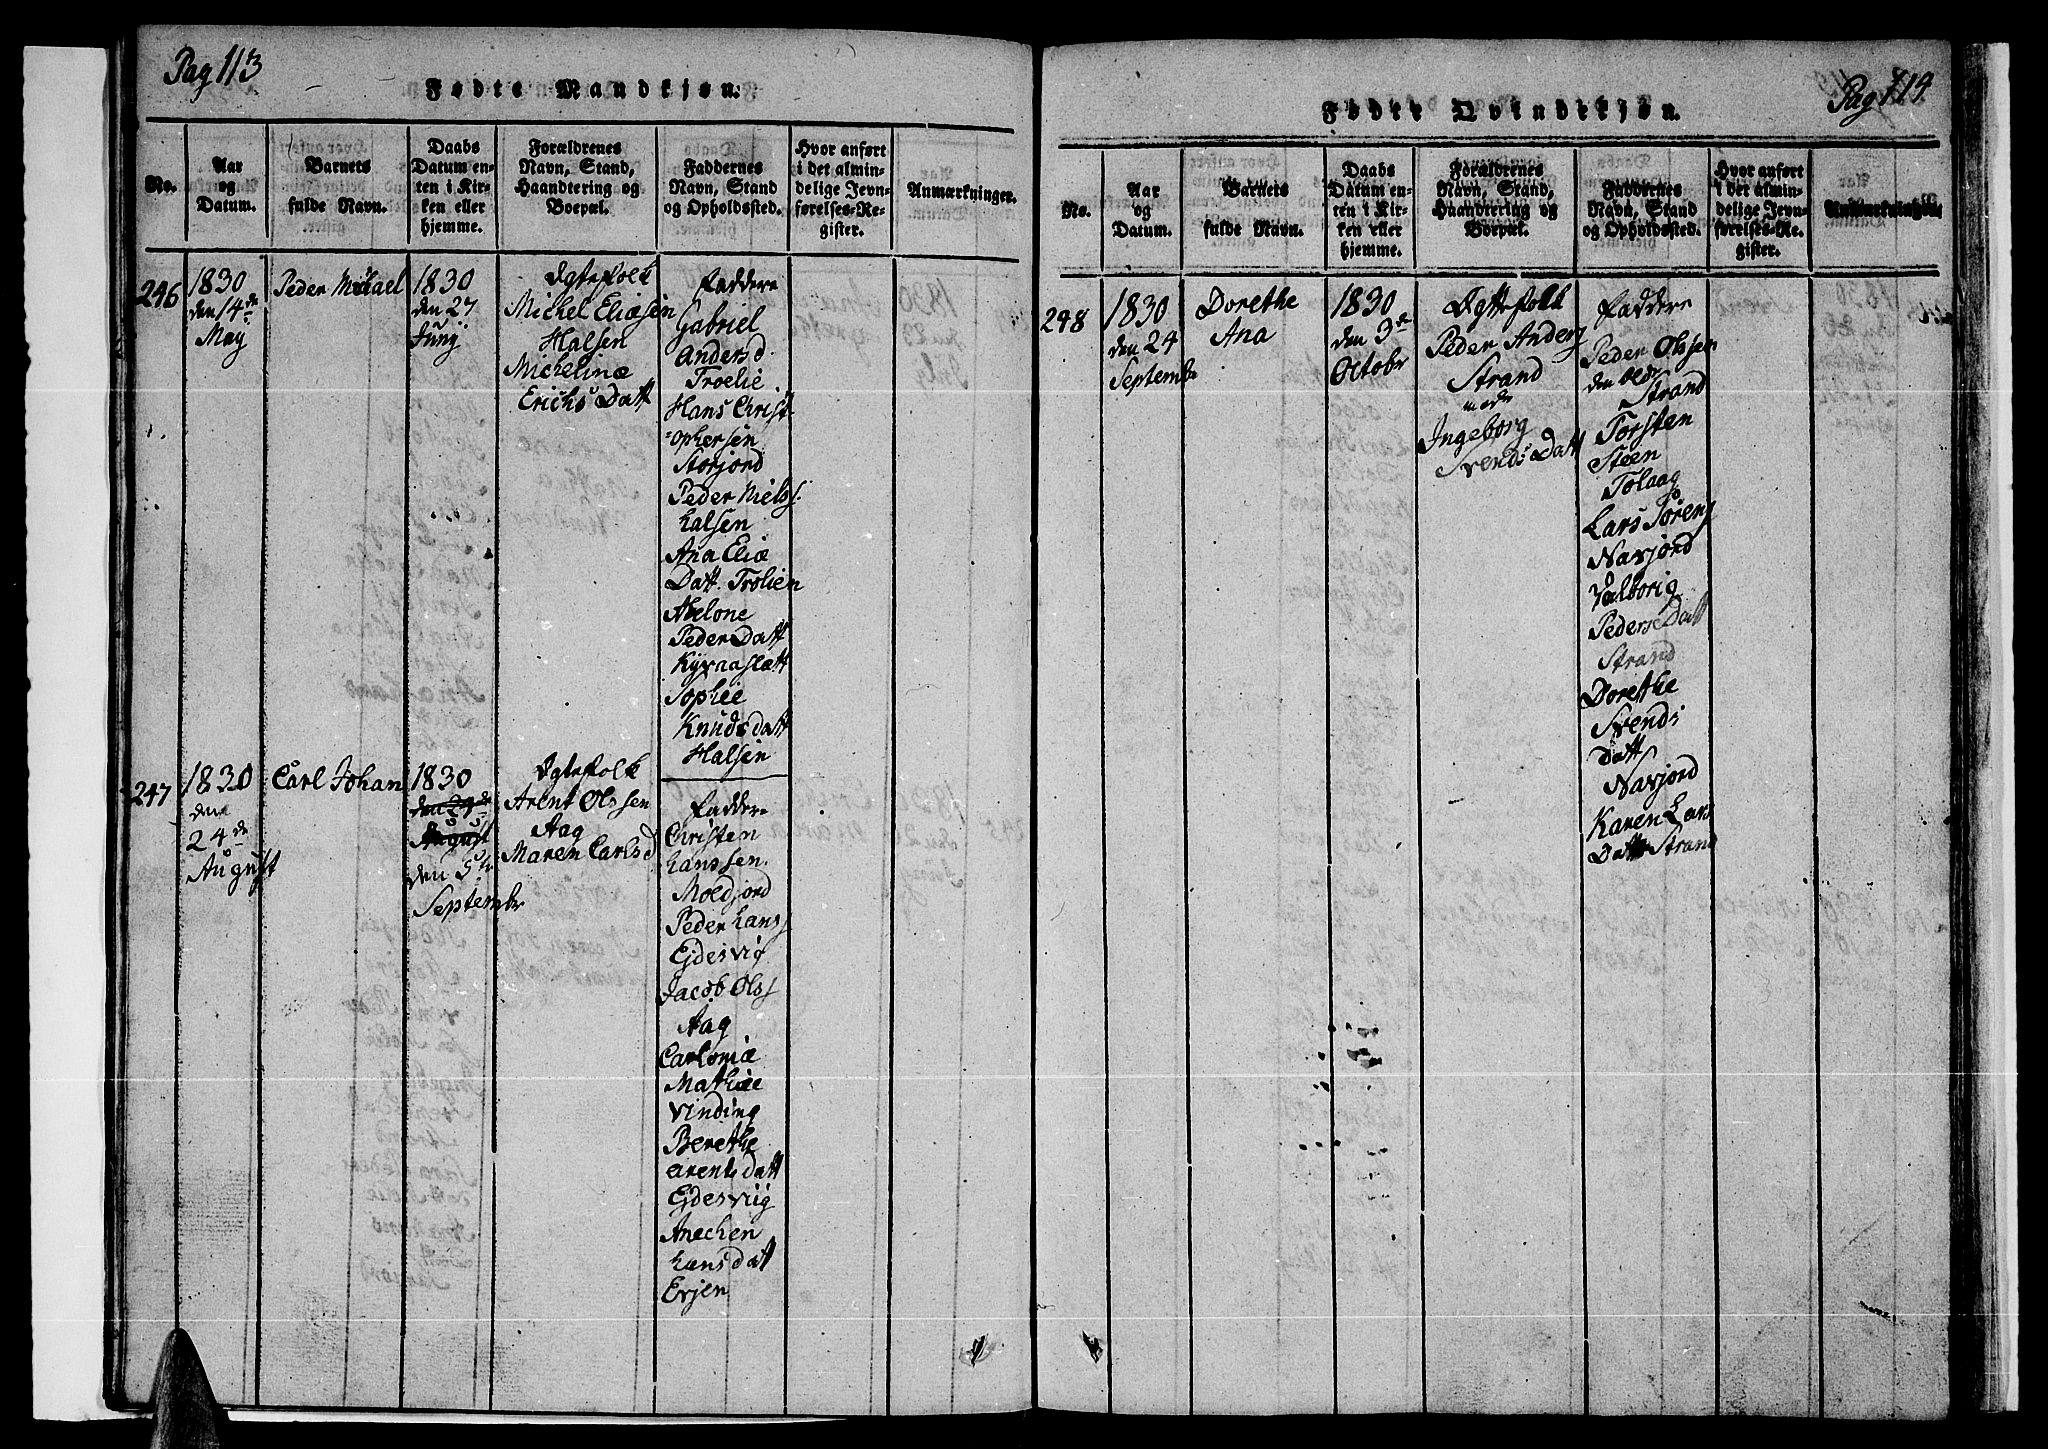 Pag 113
Fødte Mandkjøn.
No.
Aar
og
Datum.
Barnets
fulde Navn.
Daabs
Datum en-
ten i Kir-
ken eller
hjemme.
Forældrenes
Navn, Stand,
Haandtering og
Boepæl.
Faddernes
Navn, Stand
og Opholdssted.
Hvor anført
i det almin-
delige Jevn-
førelses-Re-
gister.
Anmærkninger.
246
1830
den 14de
May
Peder Micael
1830
den 27
Juny
Ægtefolk
Michel Eliæsen
Halsen
Michelinæ
Erichs Datt
Faddere
Gabriel
Andersd
Troelie
Hans Christ
=ophersen
Storjord
Peder Nielss.
Halsen
Ana Eliæ
Datt. Trolien
Abelone
Peder Datt
Kyvaaslætt
Sophie
Knudsdatt
Halsen
247
1830
den
24de
August
Carl Johan
1830
den 29de
August
den 5te
Septembr
Ægtefolk
Arent Olssen
Aag
Maren Carlsd
Faddere
Christen
Hanssen
Moldjord
Peder Hanss
Ejdesvig
Jacob Olss
Aag
Carl
Mathie
Vinding
Berethe
Arentsdatt
Ejdesviig
Anechen
Hansdatt
Evjen
Pag 114
Fødte Qvindekjøn.
No.
Aar
og
Datum.
Barnets
fulde Navn.
Daabs
Datum en-
ten i Kir-
ken eller
hjemme.
Forældrenes
Navn, Stand,
Haandtering og
Boepæl.
Faddernes
Navn, Stand
og Opholdssted.
Hvor anført
i det almin-
delige Jevn-
førelses-Re-
gister.
Anmærkninger.
248
1830
den 24
Septembr
Dorethe
Ana
1830
den 3de
Octobr
Ægttefolk
Peder Anders
Strand
Ingeborg
Svends Datt
Faddere
Peder Olssen
den Oldr
Strand
Torsten
Steen
Tolaag
Lars Sørens
Navjord
Valborig
Peders Datt
Strand
Dorethe
Svends
Datt
Navjord
Karen Lars
Datt Strand